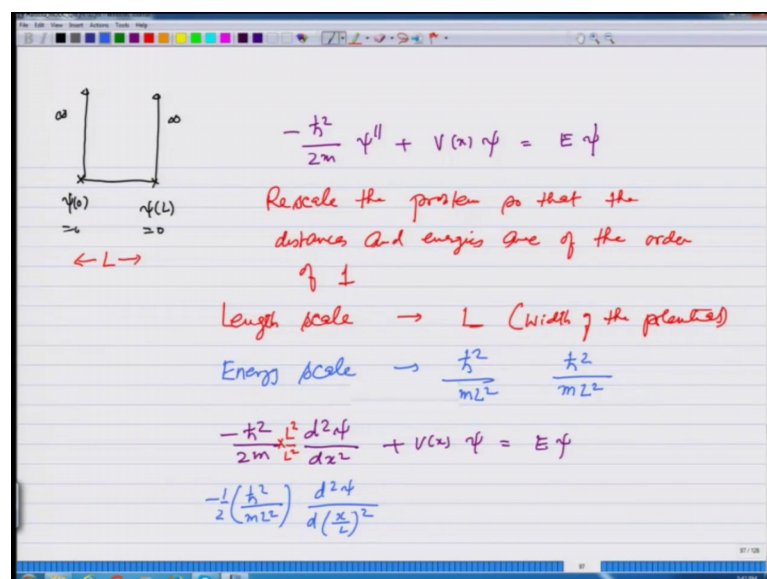 File Edit View Insert Actions Tools Help
B I
∞ ∞
ψ(0) ψ(L)
=0 =0
← L →
-ħ²/2m ψ'' + V(x) ψ = E ψ
Rescale the problem so that the
distances and energies are of the order
of 1
Length scale → L (width of the potential)
Energy scale → ħ²/mL² ħ²/mL²
-ħ²/2m × L²/L² d²ψ/dx² + V(x) ψ = E ψ
-1/2 (ħ²/mL²) d²ψ/d(x/L)²
97 / 128
97